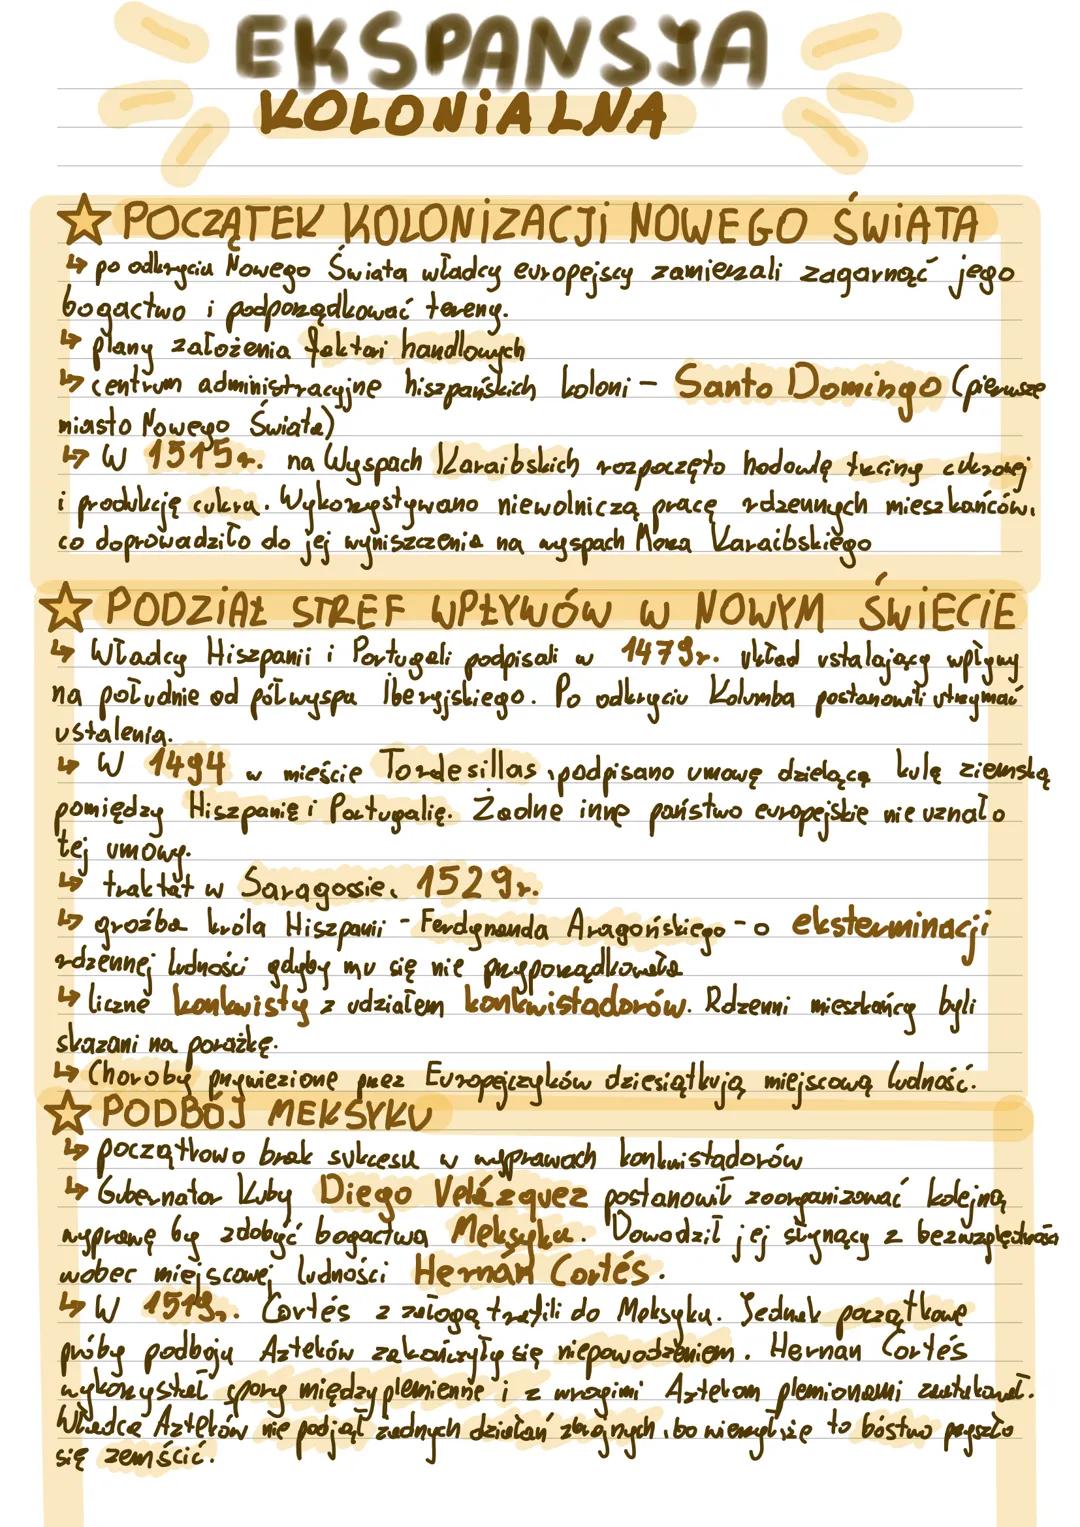 EKSPANSJA
KOLONIALNA
POCZĄTEK KOLONIZACJI NOWEGO ŚWIATA
↳ po odkryciu Nowego Świata władcy europejscy zamierzali zagarnąć jego
bogactwo i podporządkować tereny.
↳ plany założenia faktori handlowych
↳ centrum administracyjne hiszpańskich koloni - Santo Domingo (pierwsze
miasto Nowego Świata)
↳ W 1515r. na Wyspach Karaibskich rozpoczęto hodowlę trzciny cukrowej
i produkcję cukru. Wykorzystywano niewolniczą pracę rdzennych mieszkańców,
co doprowadziło do jej wyniszczenia na wyspach Morza Karaibskiego
PODZIAŁ STREF WPŁYWÓW W NOWYM ŚWIECIE
↳ Władcy Hiszpanii i Portugali podpisali w 1479r. układ ustalający wpływy
na południe od półwyspu Iberyjskiego. Po odkryciu Kolumba postanowili utrzymać
ustalenia.
↳ W 1494 w mieście Tordesillas podpisano umowę dzielącą kulę ziemską
pomiędzy Hiszpanię i Portugalię. Żadne inne państwo europejskie nie uznało
tej umowy.
↳ traktat w Saragossie, 1529r.
↳ groźba króla Hiszpanii - Ferdynanda Aragońskiego - o eksterminacji
rdzennej ludności gdyby mu się nie przyporządkowała
↳ liczne konkwisty z udziałem konkwistadorów. Rdzenni mieszkańcy byli
skazani na porażkę.
↳ Choroby przywiezione przez Europejczyków dziesiątkują miejscową ludność.
PODBÓJ MEKSYKU
↳ początkowo brak sukcesu w wyprawach konkwistadorów
↳ Gubernator Kuby Diego Velázquez postanowił zoorganizować kolejną
wyprawę by zdobyć bogactwa Meksyku. Dowodził jej słynący z bezwzględności
wobec miejscowej ludności Hernán Cortés.
↳ W 1519r. Cortés z załogą trafili do Meksyku. Jednak początkowe
próby podboju Azteków zakończyły się niepowodzeniem. Hernan Cortés
wykorzystał spory międzyplemienne i z wrogimi Aztekom plemionami zaatakował.
Władca Azteków nie podjął żadnych działań zbrojnych, bo wierzył, że to bóstwo przyszło
się zemścić.